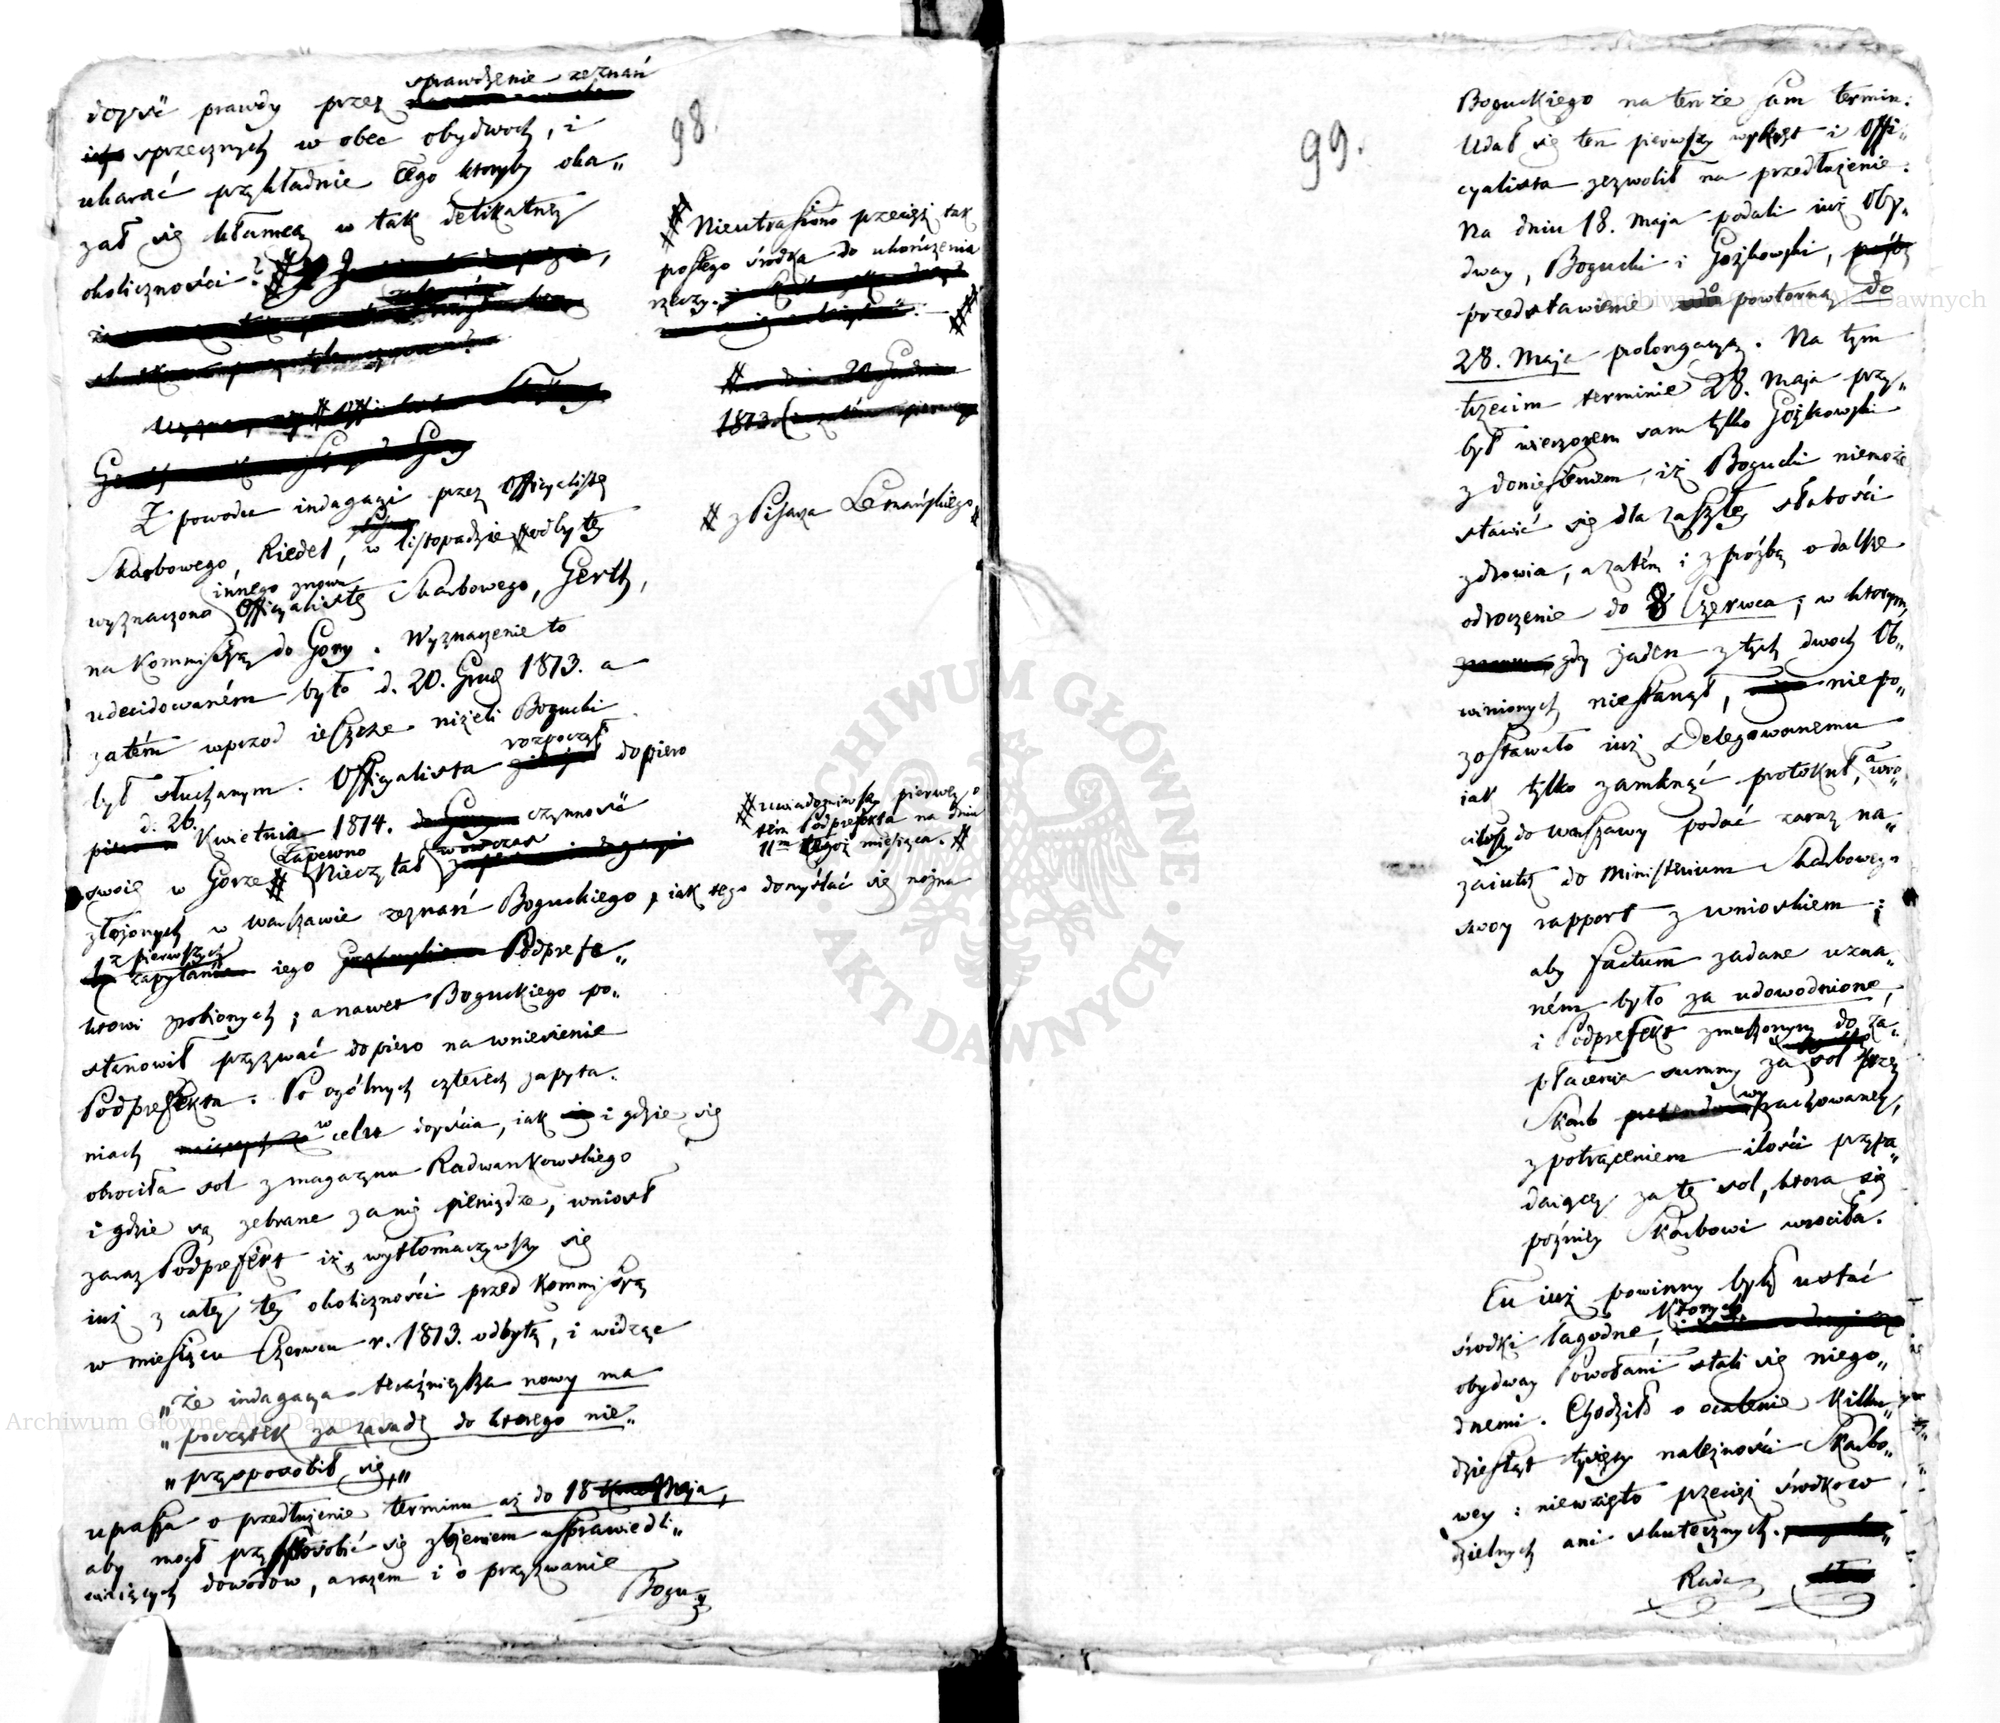 98.
sprawdzenie zeznań
dojść prawdy przez
sprzecznych w obec obydwoch, i
ukarać przykładnie tego ktoryby oka„
zał się kłamcą w tak delikatney
okoliczności?
Z powodu indagacyi przez Officyalistę
Skarbowego, Riedel, w listopadzie # odbytey
innego znowu
wyznaczono Officyalistę Skarbowego, Gerlz,
na Kommissyą do Gory. Wyznaczenie to
udecidowaném było d. 20. Grud 1813. a
zatém wprzod ieszcze niżeli Bogucki
był słuchanym. Officyalista rozpoczął dopiero
d. 26. Kwietnia 1814. czynność
Zapewno wowczas
swoię w Gorze # Nieczytał
złożonych w Warszawie zeznań Boguckiego, iak tego domyślać się można
z pierwszych
zapytań iego Podprefe„
ktowi zrobionych; a nawet Boguckiego po„
stanowił przyzwać dopiero na wniesienie
Podprefekta. Po ogólnych czterech zapyta„
niach w celu doyścia, iak i gdzie się
obrociła sol z magazynu Radwankowskiego
i gdzie są zebrane za nię pieniądze, wniosł
zaraz Podprefekt iż, wytłomaczywszy się
iuż z całey tey okoliczności przed Kommissyą
w miesiącu Czerwcu r. 1813. odbytą, i widząc
„że indagacya teraźnieysza nowy ma
„początek za zasadę do ktorego nie„
„przysposobił się„
uprasza o przedłużenie terminu aż do 18 Maja,
aby mogł przysposobić się złożeniem usprawiedli„
wiaiących dowodow, a razem i o przyzwanie
Bogu
# Nieutrafiono przecięż tak
prostego środka do ukończenia
rzeczy.
1813
# z Pisarza Lemańskiego #
# uwiadomiwszy pierwey o
tém Podprefekta na dniu
11m tegoż miesiąca. #
99.
Boguckiego na tenże sam termin.
Udał się ten pierwszy wykręt i Offi„
cyalista zezwolił na przedłużenie.
Na dniu 18. Maja podali iuż Oby„
dway, Bogucki i Gożkowski,
przedstawienie o powtorną do
28. Maja prolongacyą. Na tym
trzecim terminie 28. Maja przy„
był wieczorem sam tylko Gożkowski
z doniesieniem, iż Bogucki niemoże
stawić się dla zaszłey słabości
zdrowia, a zatém i z proźbą o dalsze
odroczenie do 8 Czerwca; w ktorym,
gdy żaden z tych dwoch Ob„
winionych niestanął, niepo„
zostawało iuż Delegowanemu
iak tylko zamknąć protokuł, a wro„
ciwszy do Warszawy podać zaraz na„
zaiutrz do Ministerium Skarbowego
swoy rapport z wnioskiem;
aby factum zadane uzna„
ném było za udowodnione,
i Podprefekt zmuszonym do za„
płacenia summy za sol przez
Skarb wyrachowaney,
z potrąceniem ilości przypa„
daiącey za tę sol, ktora się
późniey Skarbowi wrociła.
Tu iuż powinny były ustać
środki łagodne, ktorych
obydway Powołani stali się niego„
dnemi. Chodziło o ocalenie kilku„
dziesiąt tysięcy należności Skarbo„
wey: niewzięto przecięż środkow
dzielnych ani skutecznych.
Rada